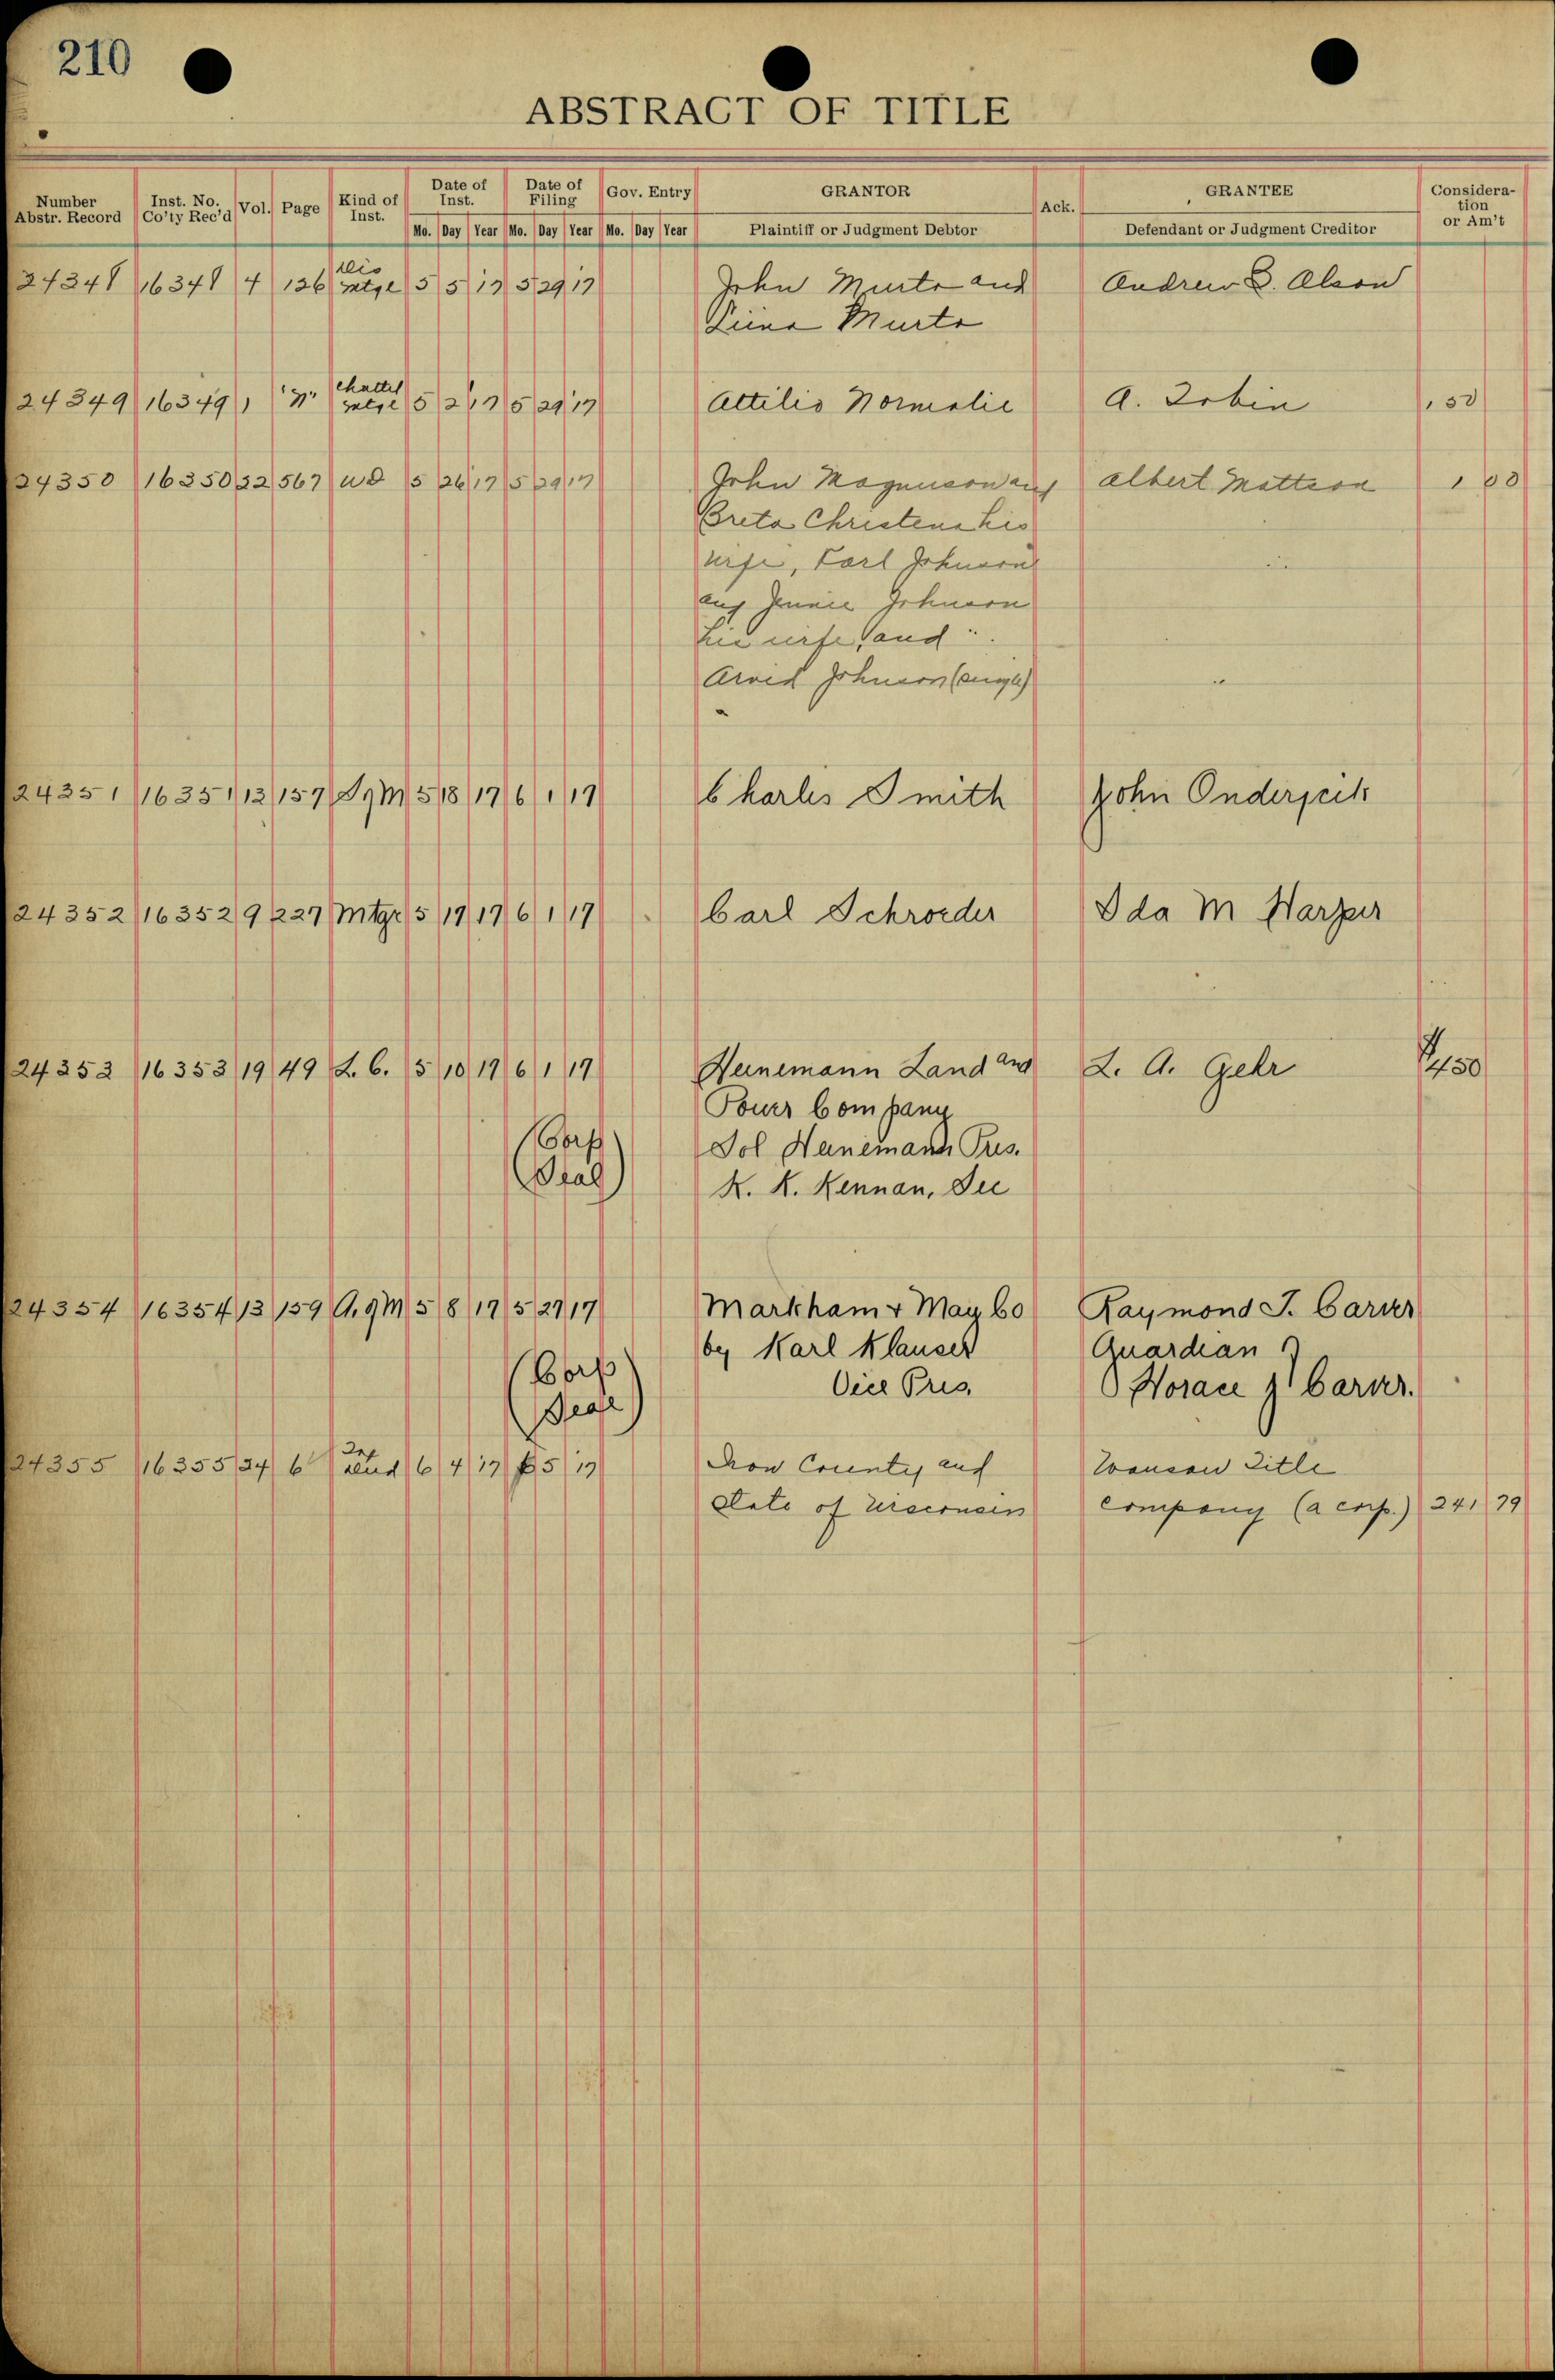 210
ABSTRACT OF TITLE
Number Abstr. Record Inst. No. Co'ty Rec'd Vol. Page Kind of Inst. Date of Inst. Date of Filing Gov. Entry GRANTOR Ack. GRANTEE Consideration or Am't
Mo. Day Year Mo. Day Year Mo. Day Year Plaintiff or Judgment Debtor Defendant or Judgment Creditor
24348 16348 4 126 Dis mtge 5 5 17 5 29 17 John Murto and Andrew B. Olson
Murto
24349 16349 1 "N" Chattel mtge 5 2 17 5 29 17 Attilio Normolie A. Tobin 150
24350 16350 22 567 WD 5 26 17 5 29 17 John Magnuson and Albert Mattson 1 00
Breta Christena his
wife, Karl Johnson
and Jennie Johnson
his wife, and
Arvid Johnson (single)
24351 16351 13 157 M 5 18 17 6 1 17 Charles Smith John
24352 16352 9 227 Mtge 5 17 17 6 1 17 Carl Schroeder Ida M Harper
24353 16353 19 49 L. C. 5 10 17 6 1 17 Heinemann Land and L. A. Gehr $450
Power Company
(Corp Sol Heinemann Pres.
Seal) K. K. Kennan, Sec
24354 16354 13 159 M 5 8 17 5 29 17 Markham & May Co Raymond J. Carver
by Karl Klauser Guardian
(Corp Vice Pres. Horace J Carver.
Seal)
24355 16355 24 6 6 4 17 6 5 17 Iron County and Wausau Title
State of Wisconsin Company (a corp.) 241 79